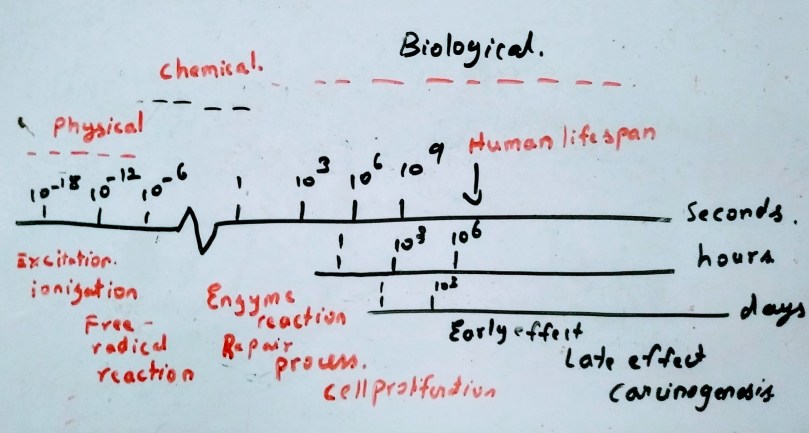 Biological.
Chemical.
Physical
Human lifespan
10-18 10-12 10-6 1 10³ 10⁶ 10⁹ Seconds.
1 10³ 10⁶ hours
1 10³ days
Excitation.
ionization
Free-
radical
reaction
Enzyme
reaction
Repair
process.
cell proliferation
Early effect
Late effect
Carcinogenosis